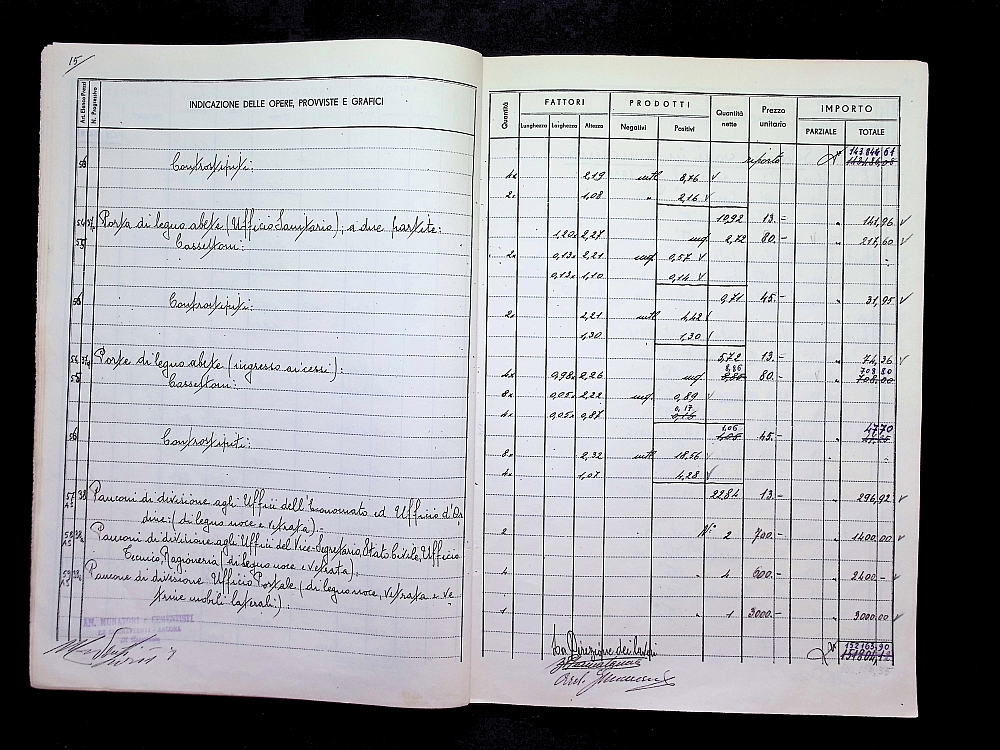 15
Art. Elenco Prezzi
N. Progressivo
INDICAZIONE DELLE OPERE, PROVVISTE E GRAFICI
56 Controstipiti:
54 Porta di legno abete (Ufficio Sanitario); a due partite:
55 Cassettoni:
56 Controstipiti:
54 Porte di legno abete (ingresso ai cessi):
55 Cassettoni:
56 Controstipiti:
57 38 Panconi di divisione agli Uffici dell'Economato ed Ufficio d'Or
dine: (di legno noce e vetrata).-
58 Panconi di divisione agli Uffici del Vice-Segretario, Stato Civile, Ufficio
Tecnico, Ragioneria (di legno noce e vetrata):
59 Pancone di divisione Ufficio Postale (di legno noce, vetrata e ve
trine mobili laterali):
Quantità
FATTORI
PRODOTTI
Quantità nette
Prezzo unitario
IMPORTO
Lunghezza Larghezza Altezza
Negativi Positivi
PARZIALE TOTALE
riporto 143.844 61
4x 2,19 mtl 8,76
2x 1,08 " 2,16
10,92 13.= " 141,96
1,20x 2,27 mq. 2,72 80.- " 217,60
2x 0,13x 2,21 mq. 0,57
0,13x 1,10 0,14
0,71 45.- " 31,95
2x 2,21 mtl 4,42
1,30 1,30
5,72 13.- " 74,36
8,86 708 80
4x 0,98x 2,26 mq. 80.- " 708,00
8x 0,05x 2,22 mq. 0,89
0,17
4x 0,05x 0,87
1,06 47 70
45.-
8x 2,32 mtl 18,56
4x 1,07 4,28
22,84 13.- " 296,92
2 N° 2 700.- " 1400.00
4 " 4 600.- " 2400.-
1 " 1 3000.- " 3000.00
La Direzione dei lavori
152163,90